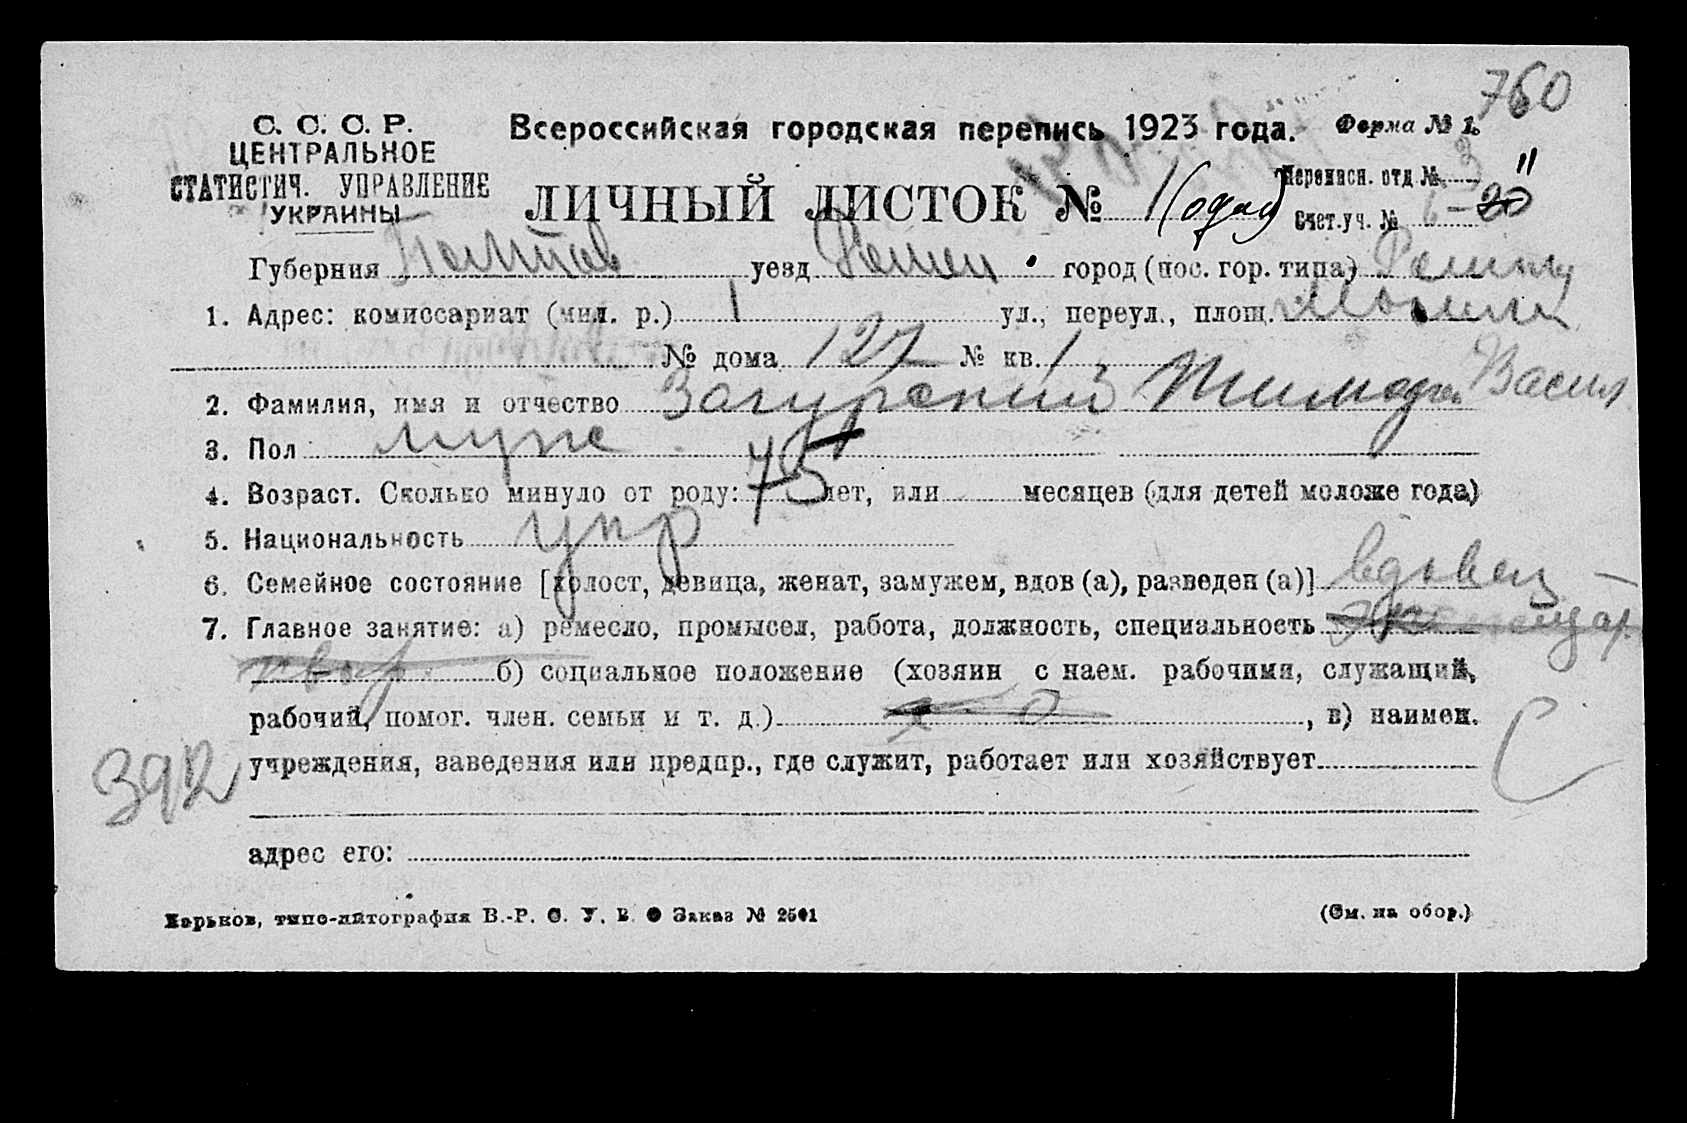 760
С. С. С. Р.
ЦЕНТРАЛЬНОЕ
СТАТИСТИЧ. УПРАВЛЕНИЕ
УКРАИНЫ
Всероссийская городская перепись 1923 года. Форма № 1.
ЛИЧНЫЙ ЛИСТОК № 1 (один)
Переписн. отд №
Счет.уч. № 20 11
Губерния Полтав уезд Ромен город (пос. гор. типа) Ромны
1. Адрес: комиссариат (мил. р.) 1 ул., переул., площ.
№ дома 127 № кв. 1
2. Фамилия, имя и отчество Загурский Тимофей Васил
3. Пол муж
4. Возраст. Сколько минуло от роду: 75 лет, или месяцев (для детей моложе года)
5. Национальность укр
6. Семейное состояние [холост, девица, женат, замужем, вдов (а), разведен (а)] вдовец
7. Главное занятие: а) ремесло, промысел, работа, должность, специальность
квар б) социальное положение (хозяин с наем. рабочими, служащий,
рабочий, помог. член. семьи и т. д.) х-о, в) наимен.
392 учреждения, заведения или предпр., где служит, работает или хозяйствует
С
адрес его:
Харьков, типо-литография В.-Р. С. У. В. О Заказ № 2501 (См. на обор.)